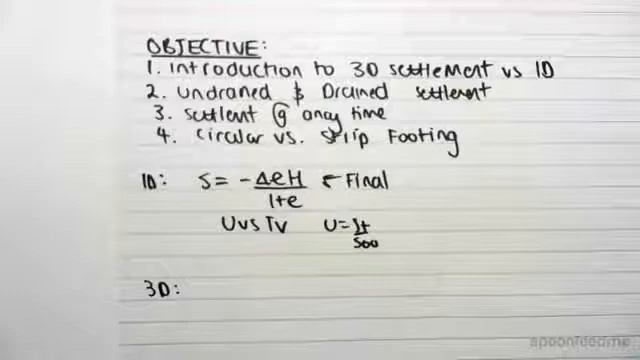 OBJECTIVE:
1. introduction to 3D settlement vs 1D
2. undraned & Drained settlemt
3. settlemt @ any time
4. circular vs. strip Footing
1D: S = -ΔeH/1+e ← Final
U vs Tv U = St/S∞
3D:
spoonfeedme